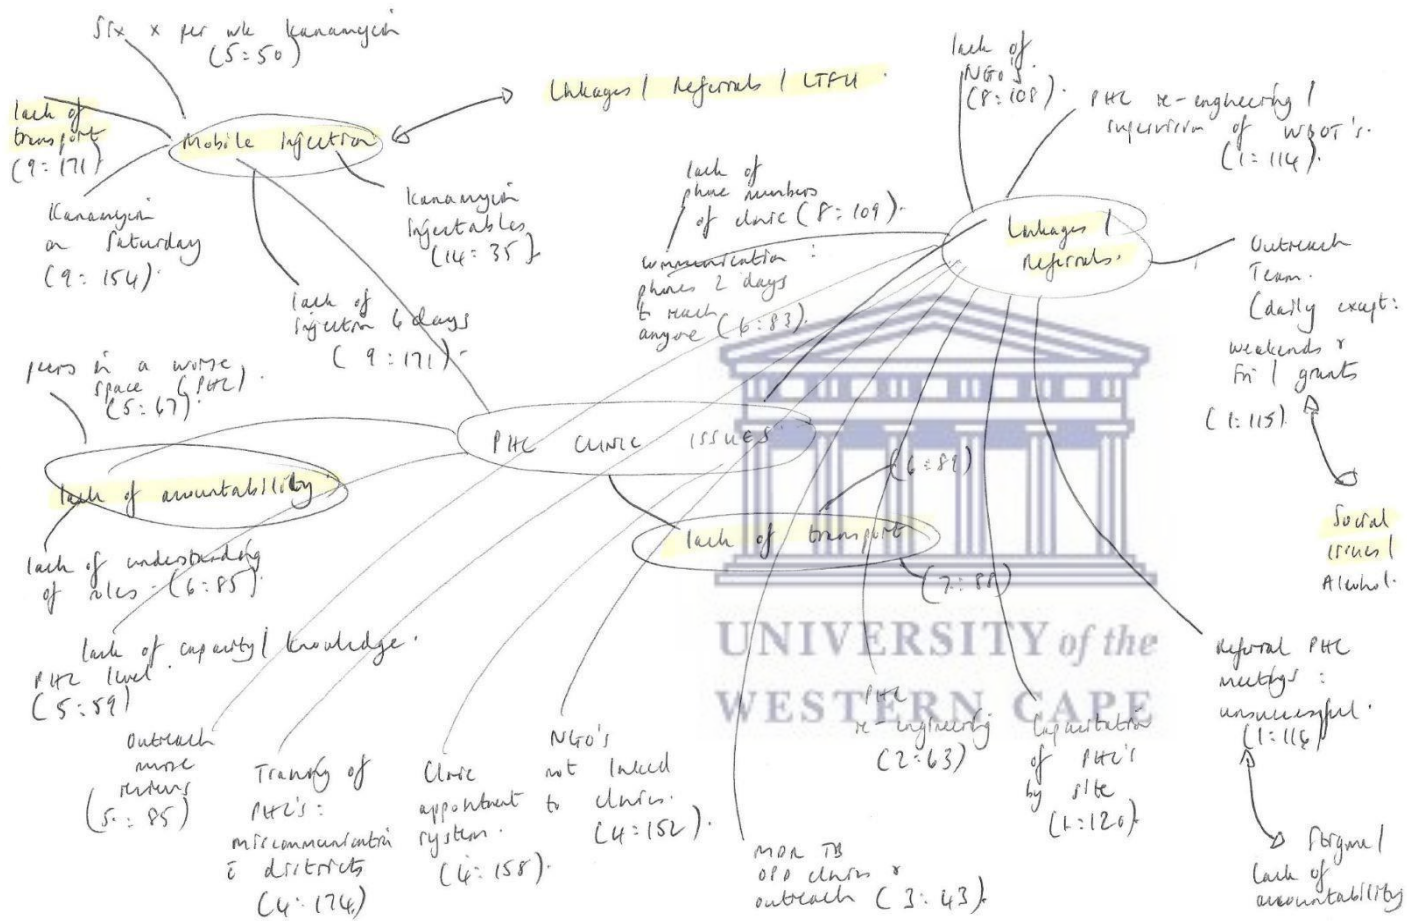 Six x per wk kanamycin
(5:50)
lack of
transport
(9:171)
Mobile injection
Linkages / Referrals / LTFU.
Kanamycin
on Saturday
(9:154).
Kanamycin
injectables
(14:35).
lack of
injection 6 days
(9:171).
lack of
NGO's.
(8:108).
PHC re-engineering /
supervision of WBOT's.
(1:114).
lack of
phone numbers
of clinic (8:109).
communication:
phones 2 days
to reach
anyone (6:83).
Linkages /
Referrals.
Outreach
Team.
(daily except:
weekends &
Fri / grants
(1:115).
Social
issues /
Alcohol.
peers in a worse
space (PHC).
(5:67).
PHC CLINIC ISSUES
lack of accountability.
lack of understanding
of roles (6:85).
lack of transport
(6:89)
(7:88)
lack of capacity / knowledge.
PHC level.
(5:59)
UNIVERSITY of the
WESTERN CAPE
Outreach
nurse
reviews
(5:85)
Training of
PHC's:
miscommunication
c̄ districts
(4:174)
Clinic
appointment
system.
(4:158).
NGO's
not linked
to clinics.
(4:152).
MDR TB
OPD clinics &
outreach (3:43).
PHC
re-engineering
(2:63)
Capacitation
of PHC's
by site
(1:120).
Referral PHC
meetings:
unsuccessful.
(1:116)
Stigma /
lack of
accountability